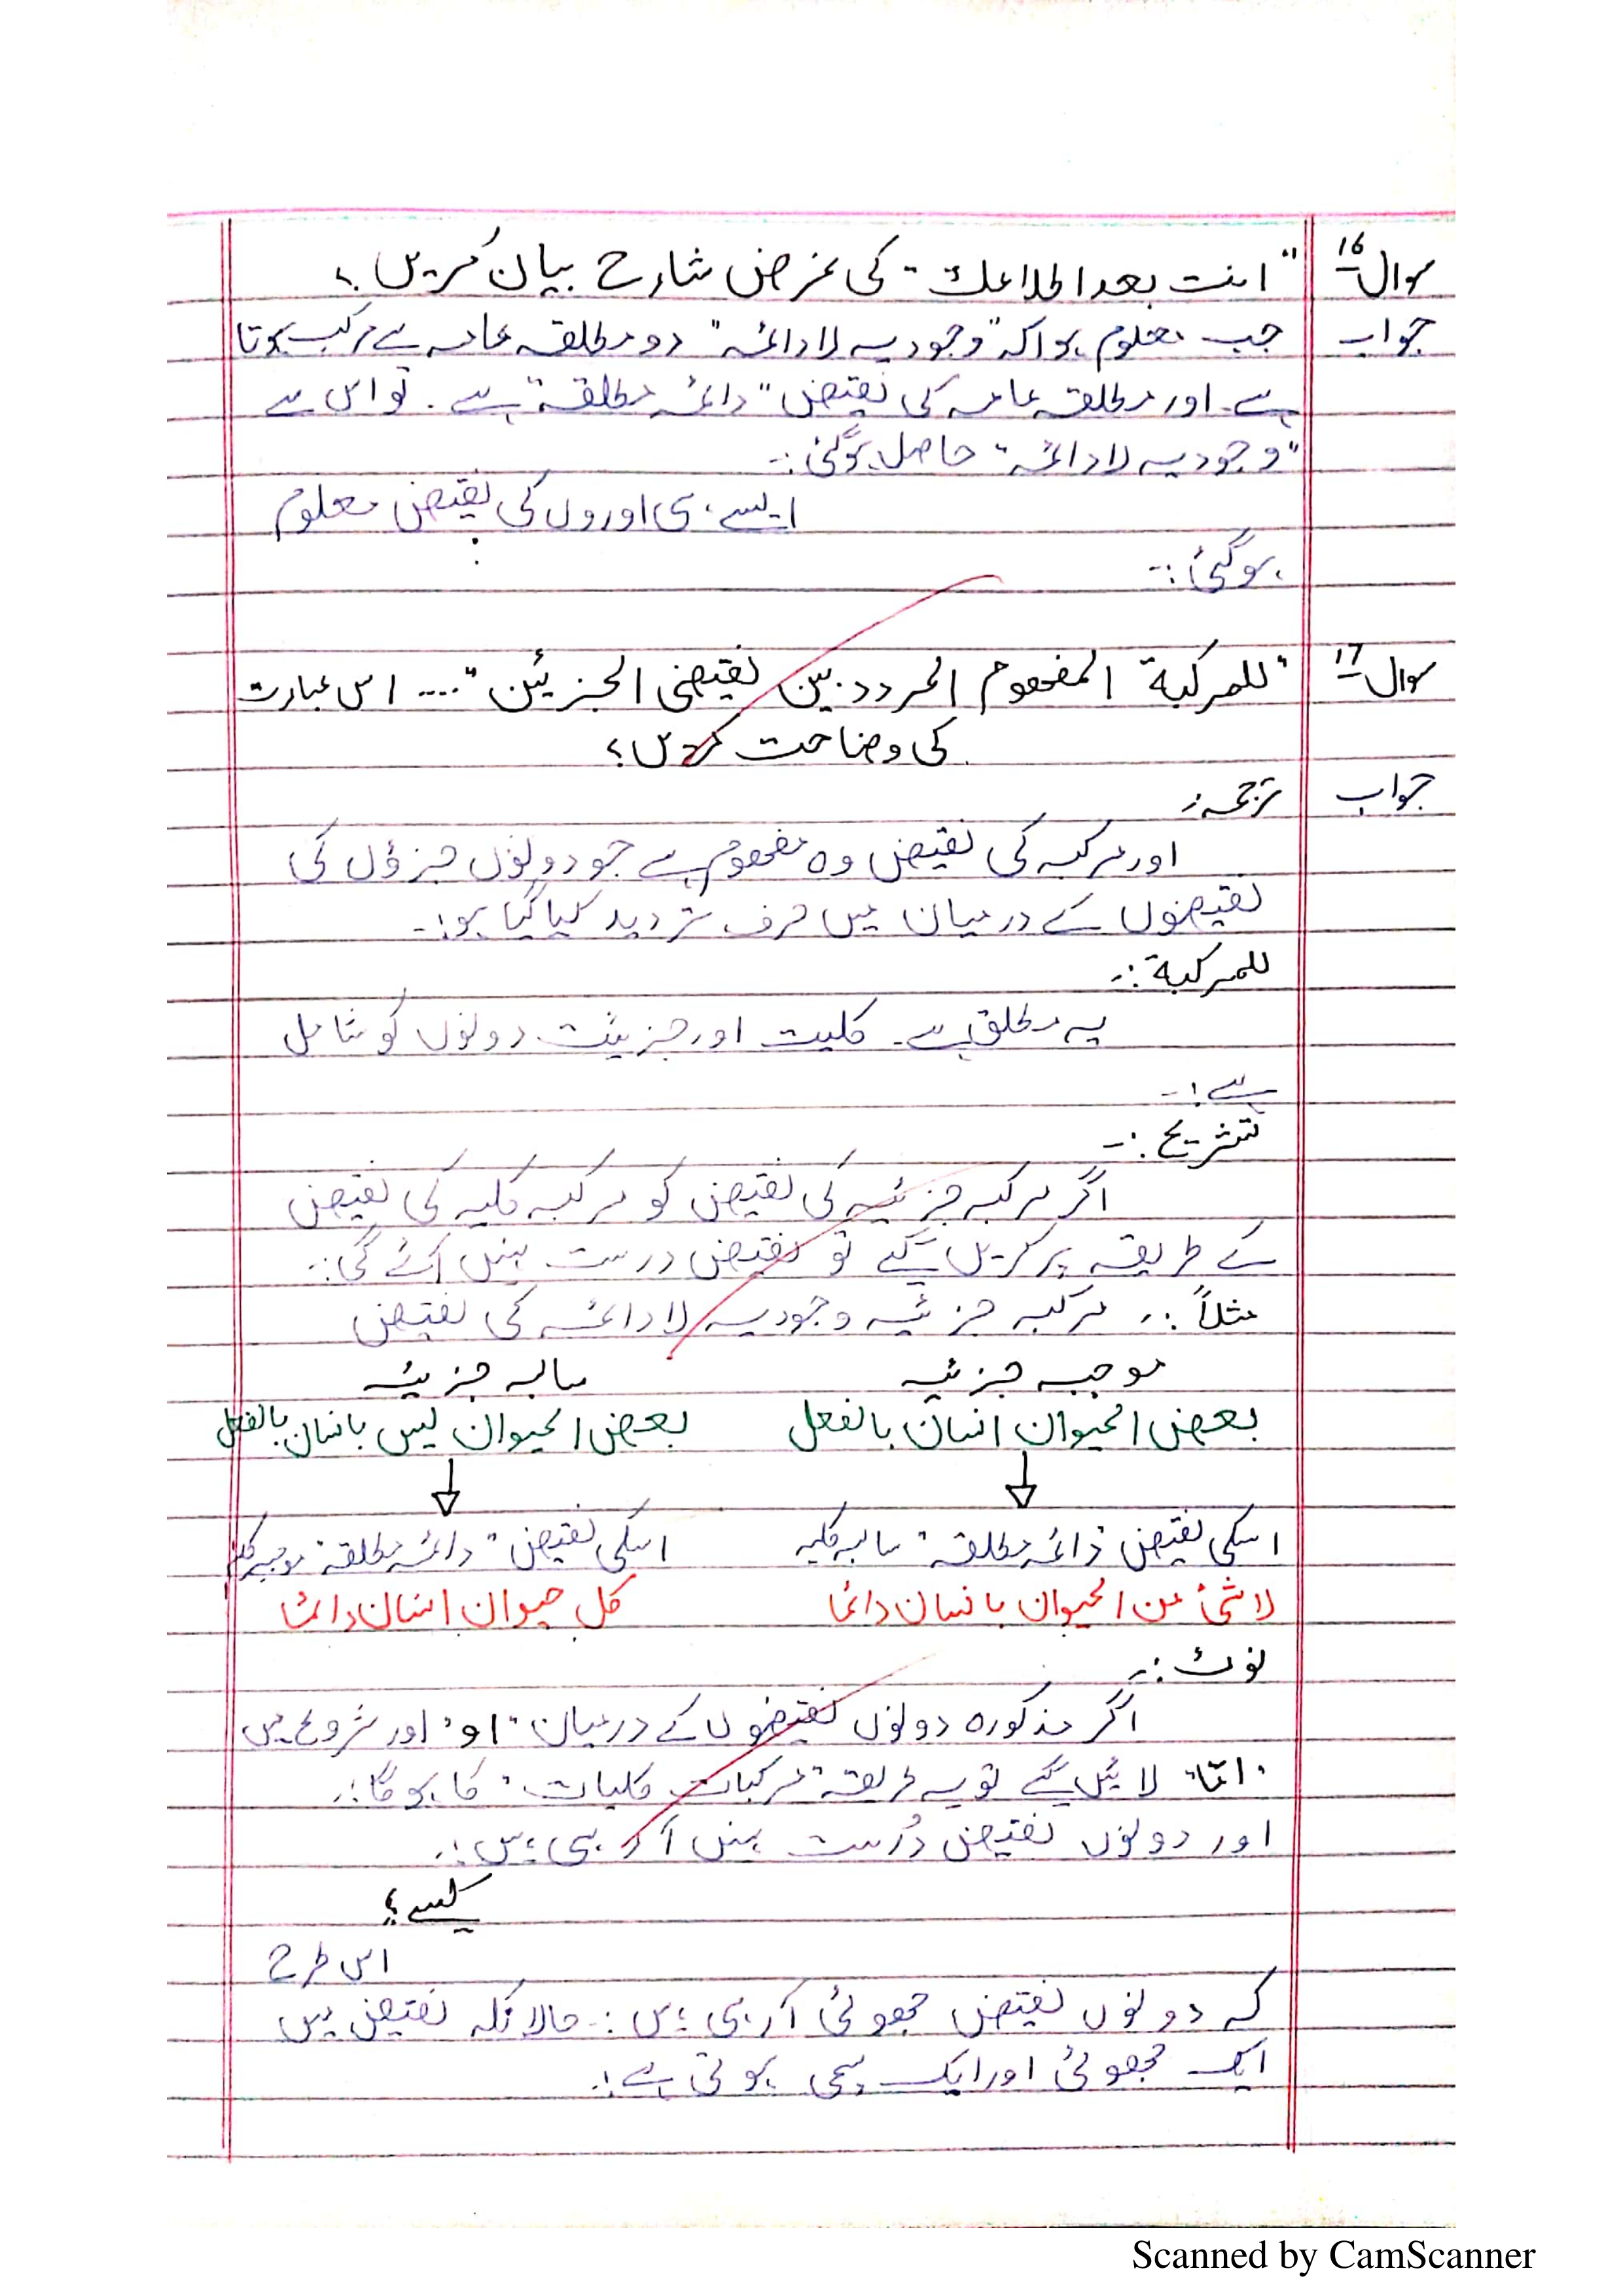 سوال ۱۶ "انت بعد اطلاعك" کی غرض شارح بیان کریں؟
جواب جب معلوم ہوا کہ "وجودیہ لادائمہ" دو مطلقہ عامہ سے مرکب ہوتا
ہے۔ اور مطلقہ عامہ کی نقیض "دائمہ مطلقہ" ہے۔ تو اس سے
"وجودیہ لادائمہ" حاصل ہوگئی:۔
ایسے ہی اوروں کی نقیض معلوم
ہوگئی:۔
سوال ۱۷ "للمركبة المفهوم المردد بين نقيضى الجزئين"۔۔۔۔ اس عبارت
کی وضاحت کریں؟
جواب ترجمہ:
اور مرکبہ کی نقیض وہ مفہوم ہے جو دونوں جزؤں کی
نقیضوں کے درمیان میں حرف تردید کیا گیا ہو:۔
للمركبة:۔
یہ مطلق ہے۔ کلیت اور جزئیت دونوں کو شامل
ہے:۔
تشریح:۔
اگر مرکبہ جزئیہ کی نقیض کو مرکبہ کلیہ کی نقیض
کے طریقہ پر کریں گے تو نقیض درست نہیں آئے گی:۔
مثلاً:۔ مرکبہ جزئیہ وجودیہ لادائمہ کی نقیض
موجبہ جزئیہ سالبہ جزئیہ
بعض الحیوان انسان بالفعل بعض الحیوان لیس بانسان بالفعل
اسکی نقیض "دائمہ مطلقہ" سالبہ کلیہ اسکی نقیض "دائمہ مطلقہ" موجبہ کلیہ
لا شئ من الحیوان بانسان دائما کل حیوان انسان دائما
نوٹ:۔
اگر مذکورہ دونوں نقیضوں کے درمیان "او" اور شروع میں
"امّا" لائیں گے تو یہ طریقہ "مرکبات کلیات" کا ہوگا:۔
اور دونوں نقیض دُرست نہیں آ رہی ہیں:۔
کیسے؟
اس طرح
کہ دونوں نقیض جھوٹی آ رہی ہیں:۔ حالانکہ نقیض میں
ایک جھوٹی اور ایک سچی ہوتی ہے:۔
Scanned by CamScanner